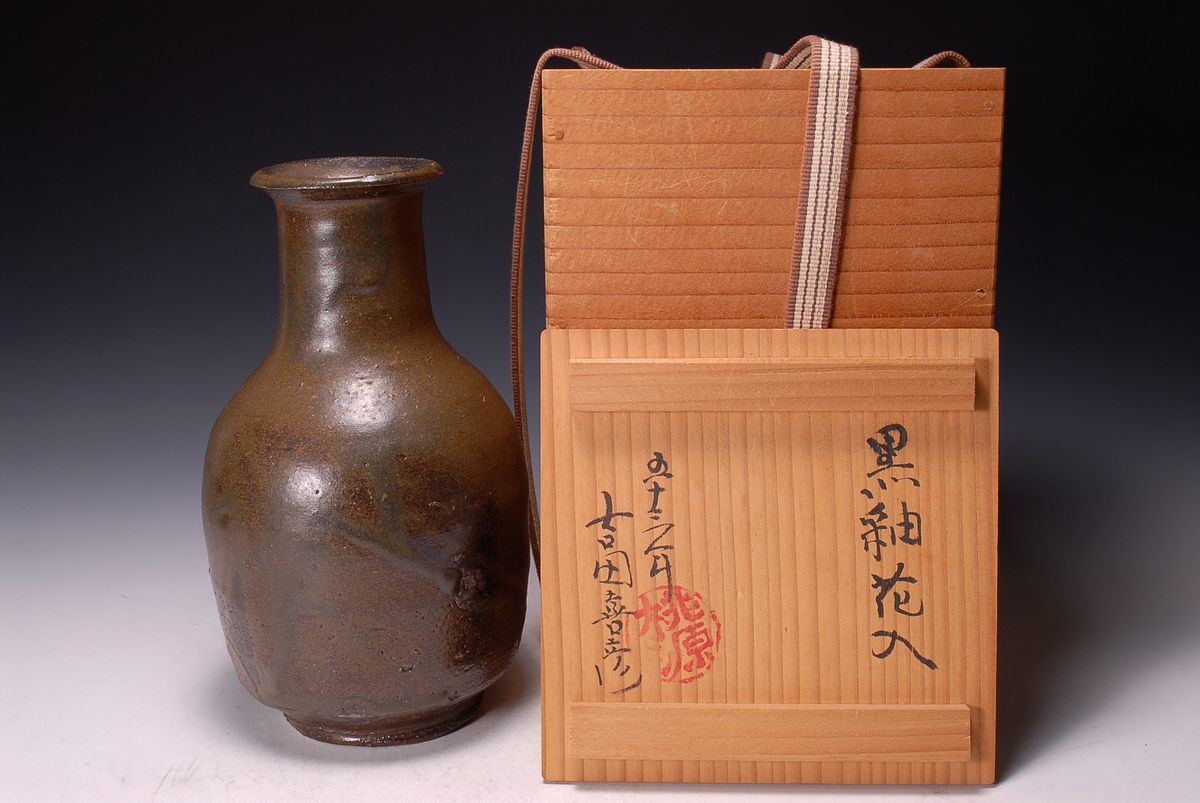 黒釉花入
五十二年
吉田喜彦
桃原